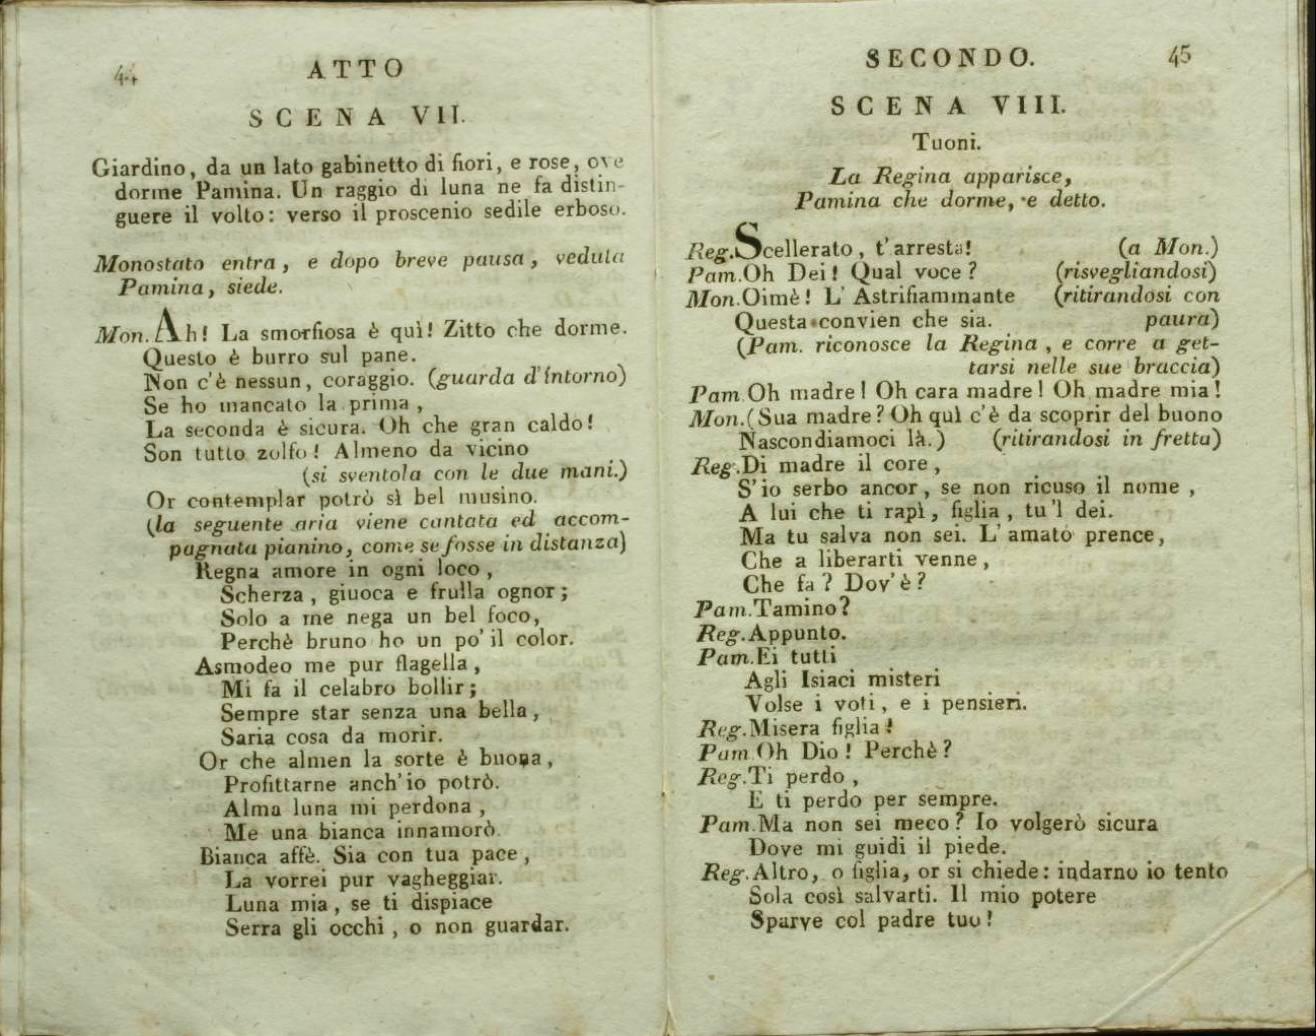 44
ATTO
SCENA VII.
Giardino, da un lato gabinetto di fiori, e rose, ove
dorme Pamina. Un raggio di luna ne fa distin-
guere il volto: verso il proscenio sedile erboso.
Monostato entra, e dopo breve pausa, veduta
Pamina, siede.
Mon. Ah! La smorfiosa è quì! Zitto che dorme.
Questo è burro sul pane.
Non c'è nessun, coraggio. (guarda d'intorno)
Se ho mancato la prima,
La seconda è sicura. Oh che gran caldo!
Son tutto zolfo! Almeno da vicino
(si sventola con le due mani.)
Or contemplar potrò sì bel musino.
(la seguente aria viene cantata ed accom-
pagnata pianino, come se fosse in distanza)
Regna amore in ogni loco,
Scherza, giuoca e frulla ognor;
Solo a me nega un bel foco,
Perchè bruno ho un po' il color.
Asmodeo me pur flagella,
Mi fa il celabro bollir;
Sempre star senza una bella,
Saria cosa da morir.
Or che almen la sorte è buona,
Profittarne anch'io potrò.
Alma luna mi perdona,
Me una bianca innamorò.
Bianca affè. Sia con tua pace,
La vorrei pur vagheggiar.
Luna mia, se ti dispiace
Serra gli occhi, o non guardar.
SECONDO.
45
SCENA VIII.
Tuoni.
La Regina apparisce,
Pamina che dorme, e detto.
Reg. Scellerato, t'arresta! (a Mon.)
Pam. Oh Dei! Qual voce? (risvegliandosi)
Mon. Oimè! L'Astrifiammante (ritirandosi con
Questa convien che sia. paura)
(Pam. riconosce la Regina, e corre a get-
tarsi nelle sue braccia)
Pam. Oh madre! Oh cara madre! Oh madre mia!
Mon. (Sua madre? Oh quì c'è da scoprir del buono
Nascondiamoci là.) (ritirandosi in fretta)
Reg. Di madre il core,
S'io serbo ancor, se non ricuso il nome,
A lui che ti rapì, figlia, tu'l dei.
Ma tu salva non sei. L'amato prence,
Che a liberarti venne,
Che fa? Dov'è?
Pam. Tamino?
Reg. Appunto.
Pam. Ei tutti
Agli Isiaci misteri
Volse i voti, e i pensieri.
Reg. Misera figlia!
Pam. Oh Dio! Perchè?
Reg. Ti perdo,
E ti perdo per sempre.
Pam. Ma non sei meco? Io volgerò sicura
Dove mi guidi il piede.
Reg. Altro, o figlia, or si chiede: indarno io tento
Sola così salvarti. Il mio potere
Sparve col padre tuo!